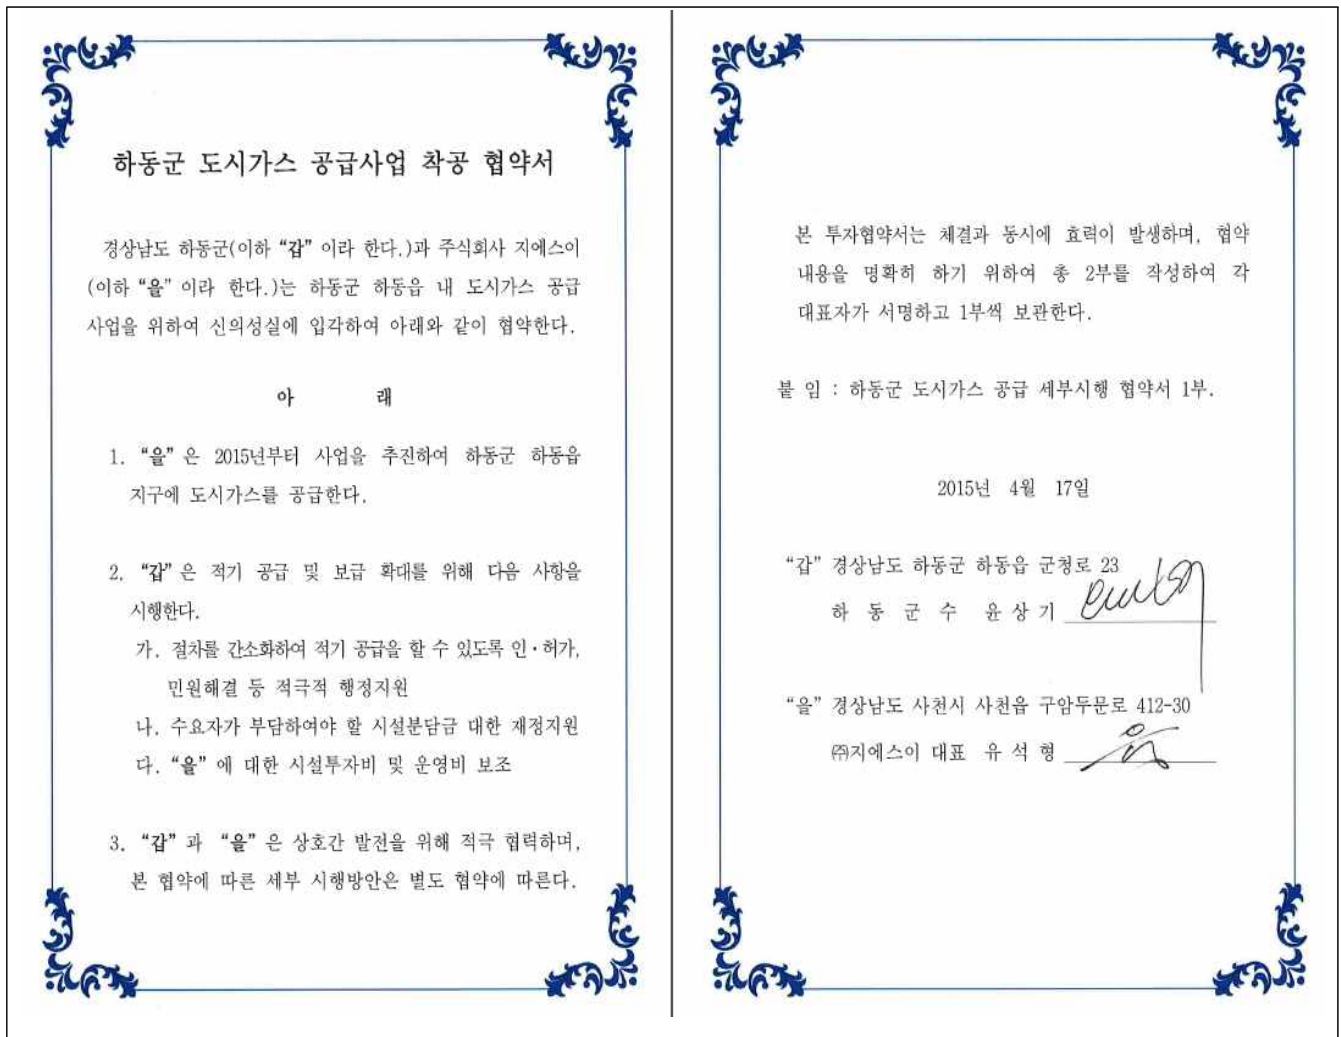 하동군 도시가스 공급사업 착공 협약서
경상남도 하동군(이하 “갑” 이라 한다.)과 주식회사 지에스이
(이하 “을” 이라 한다.)는 하동군 하동읍 내 도시가스 공급
사업을 위하여 신의성실에 입각하여 아래와 같이 협약한다.
아 래
1. “을” 은 2015년부터 사업을 추진하여 하동군 하동읍
지구에 도시가스를 공급한다.
2. “갑” 은 적기 공급 및 보급 확대를 위해 다음 사항을
시행한다.
가. 절차를 간소화하여 적기 공급을 할 수 있도록 인·허가,
민원해결 등 적극적 행정지원
나. 수요자가 부담하여야 할 시설분담금 대한 재정지원
다. “을” 에 대한 시설투자비 및 운영비 보조
3. “갑” 과 “을” 은 상호간 발전을 위해 적극 협력하며,
본 협약에 따른 세부 시행방안은 별도 협약에 따른다.
본 투자협약서는 체결과 동시에 효력이 발생하며, 협약
내용을 명확히 하기 위하여 총 2부를 작성하여 각
대표자가 서명하고 1부씩 보관한다.
붙 임 : 하동군 도시가스 공급 세부시행 협약서 1부.
2015년 4월 17일
“갑” 경상남도 하동군 하동읍 군청로 23
하 동 군 수 윤 상 기
“을” 경상남도 사천시 사천읍 구암두문로 412-30
㈜지에스이 대표 유 석 형